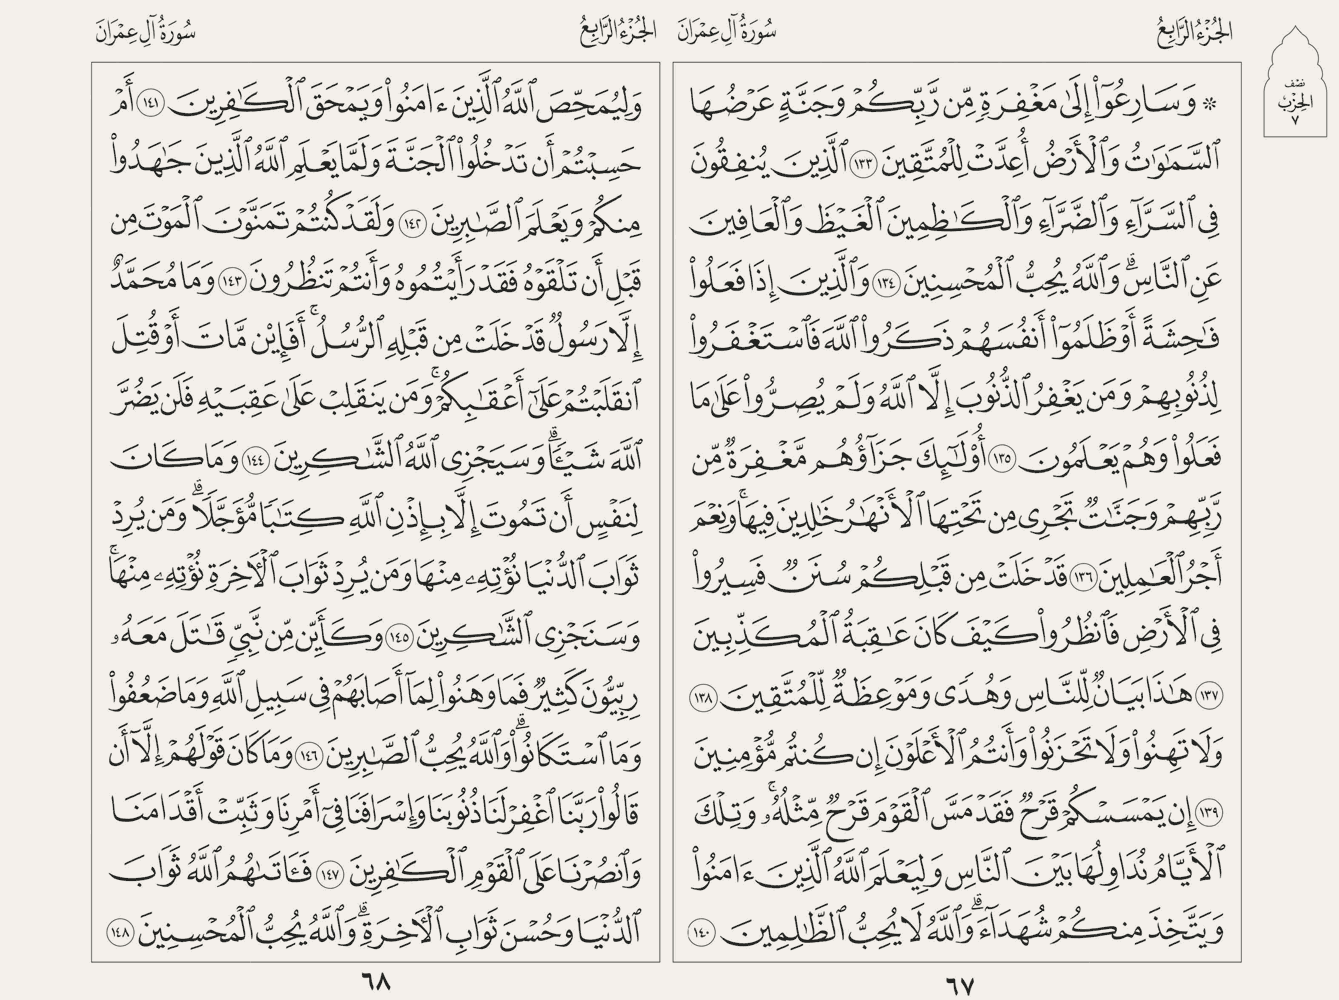 الجُزْءُ الرَّابِعُ
سُورَةُ آلِ عِمْرَانَ
نصف
الحِزْب
٧
۞ وَسَارِعُوٓا۟ إِلَىٰ مَغْفِرَةٍ مِّن رَّبِّكُمْ وَجَنَّةٍ عَرْضُهَا
ٱلسَّمَـٰوَٰتُ وَٱلْأَرْضُ أُعِدَّتْ لِلْمُتَّقِينَ ١٣٣ ٱلَّذِينَ يُنفِقُونَ
فِى ٱلسَّرَّآءِ وَٱلضَّرَّآءِ وَٱلْكَـٰظِمِينَ ٱلْغَيْظَ وَٱلْعَافِينَ
عَنِ ٱلنَّاسِ ۗ وَٱللَّهُ يُحِبُّ ٱلْمُحْسِنِينَ ١٣٤ وَٱلَّذِينَ إِذَا فَعَلُوا۟
فَـٰحِشَةً أَوْ ظَلَمُوٓا۟ أَنفُسَهُمْ ذَكَرُوا۟ ٱللَّهَ فَٱسْتَغْفَرُوا۟
لِذُنُوبِهِمْ وَمَن يَغْفِرُ ٱلذُّنُوبَ إِلَّا ٱللَّهُ وَلَمْ يُصِرُّوا۟ عَلَىٰ مَا
فَعَلُوا۟ وَهُمْ يَعْلَمُونَ ١٣٥ أُو۟لَـٰٓئِكَ جَزَآؤُهُم مَّغْفِرَةٌ مِّن
رَّبِّهِمْ وَجَنَّـٰتٌ تَجْرِى مِن تَحْتِهَا ٱلْأَنْهَـٰرُ خَـٰلِدِينَ فِيهَا ۚ وَنِعْمَ
أَجْرُ ٱلْعَـٰمِلِينَ ١٣٦ قَدْ خَلَتْ مِن قَبْلِكُمْ سُنَنٌ فَسِيرُوا۟
فِى ٱلْأَرْضِ فَٱنظُرُوا۟ كَيْفَ كَانَ عَـٰقِبَةُ ٱلْمُكَذِّبِينَ
١٣٧ هَـٰذَا بَيَانٌ لِّلنَّاسِ وَهُدًى وَمَوْعِظَةٌ لِّلْمُتَّقِينَ ١٣٨
وَلَا تَهِنُوا۟ وَلَا تَحْزَنُوا۟ وَأَنتُمُ ٱلْأَعْلَوْنَ إِن كُنتُم مُّؤْمِنِينَ
١٣٩ إِن يَمْسَسْكُمْ قَرْحٌ فَقَدْ مَسَّ ٱلْقَوْمَ قَرْحٌ مِّثْلُهُۥ ۚ وَتِلْكَ
ٱلْأَيَّامُ نُدَاوِلُهَا بَيْنَ ٱلنَّاسِ وَلِيَعْلَمَ ٱللَّهُ ٱلَّذِينَ ءَامَنُوا۟
وَيَتَّخِذَ مِنكُمْ شُهَدَآءَ ۗ وَٱللَّهُ لَا يُحِبُّ ٱلظَّـٰلِمِينَ ١٤٠
٦٧
الجُزْءُ الرَّابِعُ
سُورَةُ آلِ عِمْرَانَ
وَلِيُمَحِّصَ ٱللَّهُ ٱلَّذِينَ ءَامَنُوا۟ وَيَمْحَقَ ٱلْكَـٰفِرِينَ ١٤١ أَمْ
حَسِبْتُمْ أَن تَدْخُلُوا۟ ٱلْجَنَّةَ وَلَمَّا يَعْلَمِ ٱللَّهُ ٱلَّذِينَ جَـٰهَدُوا۟
مِنكُمْ وَيَعْلَمَ ٱلصَّـٰبِرِينَ ١٤٢ وَلَقَدْ كُنتُمْ تَمَنَّوْنَ ٱلْمَوْتَ مِن
قَبْلِ أَن تَلْقَوْهُ فَقَدْ رَأَيْتُمُوهُ وَأَنتُمْ تَنظُرُونَ ١٤٣ وَمَا مُحَمَّدٌ
إِلَّا رَسُولٌ قَدْ خَلَتْ مِن قَبْلِهِ ٱلرُّسُلُ ۚ أَفَإِي۟ن مَّاتَ أَوْ قُتِلَ
ٱنقَلَبْتُمْ عَلَىٰٓ أَعْقَـٰبِكُمْ ۚ وَمَن يَنقَلِبْ عَلَىٰ عَقِبَيْهِ فَلَن يَضُرَّ
ٱللَّهَ شَيْـًٔا ۗ وَسَيَجْزِى ٱللَّهُ ٱلشَّـٰكِرِينَ ١٤٤ وَمَا كَانَ
لِنَفْسٍ أَن تَمُوتَ إِلَّا بِإِذْنِ ٱللَّهِ كِتَـٰبًا مُّؤَجَّلًا ۗ وَمَن يُرِدْ
ثَوَابَ ٱلدُّنْيَا نُؤْتِهِۦ مِنْهَا وَمَن يُرِدْ ثَوَابَ ٱلْـَٔاخِرَةِ نُؤْتِهِۦ مِنْهَا ۚ
وَسَنَجْزِى ٱلشَّـٰكِرِينَ ١٤٥ وَكَأَيِّن مِّن نَّبِىٍّ قَـٰتَلَ مَعَهُۥ
رِبِّيُّونَ كَثِيرٌ فَمَا وَهَنُوا۟ لِمَآ أَصَابَهُمْ فِى سَبِيلِ ٱللَّهِ وَمَا ضَعُفُوا۟
وَمَا ٱسْتَكَانُوا۟ ۗ وَٱللَّهُ يُحِبُّ ٱلصَّـٰبِرِينَ ١٤٦ وَمَا كَانَ قَوْلَهُمْ إِلَّآ أَن
قَالُوا۟ رَبَّنَا ٱغْفِرْ لَنَا ذُنُوبَنَا وَإِسْرَافَنَا فِىٓ أَمْرِنَا وَثَبِّتْ أَقْدَامَنَا
وَٱنصُرْنَا عَلَى ٱلْقَوْمِ ٱلْكَـٰفِرِينَ ١٤٧ فَـَٔاتَىٰهُمُ ٱللَّهُ ثَوَابَ
ٱلدُّنْيَا وَحُسْنَ ثَوَابِ ٱلْـَٔاخِرَةِ ۗ وَٱللَّهُ يُحِبُّ ٱلْمُحْسِنِينَ ١٤٨
٦٨